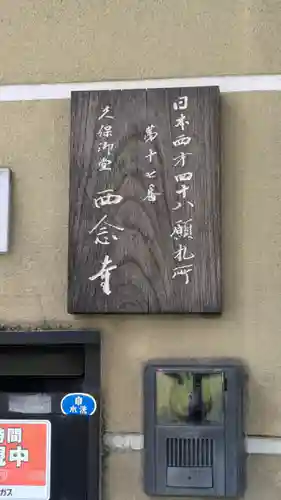 日本西方四十八願札所
第十七番
久保御堂 西念寺
水洗
時間
視中
ガス